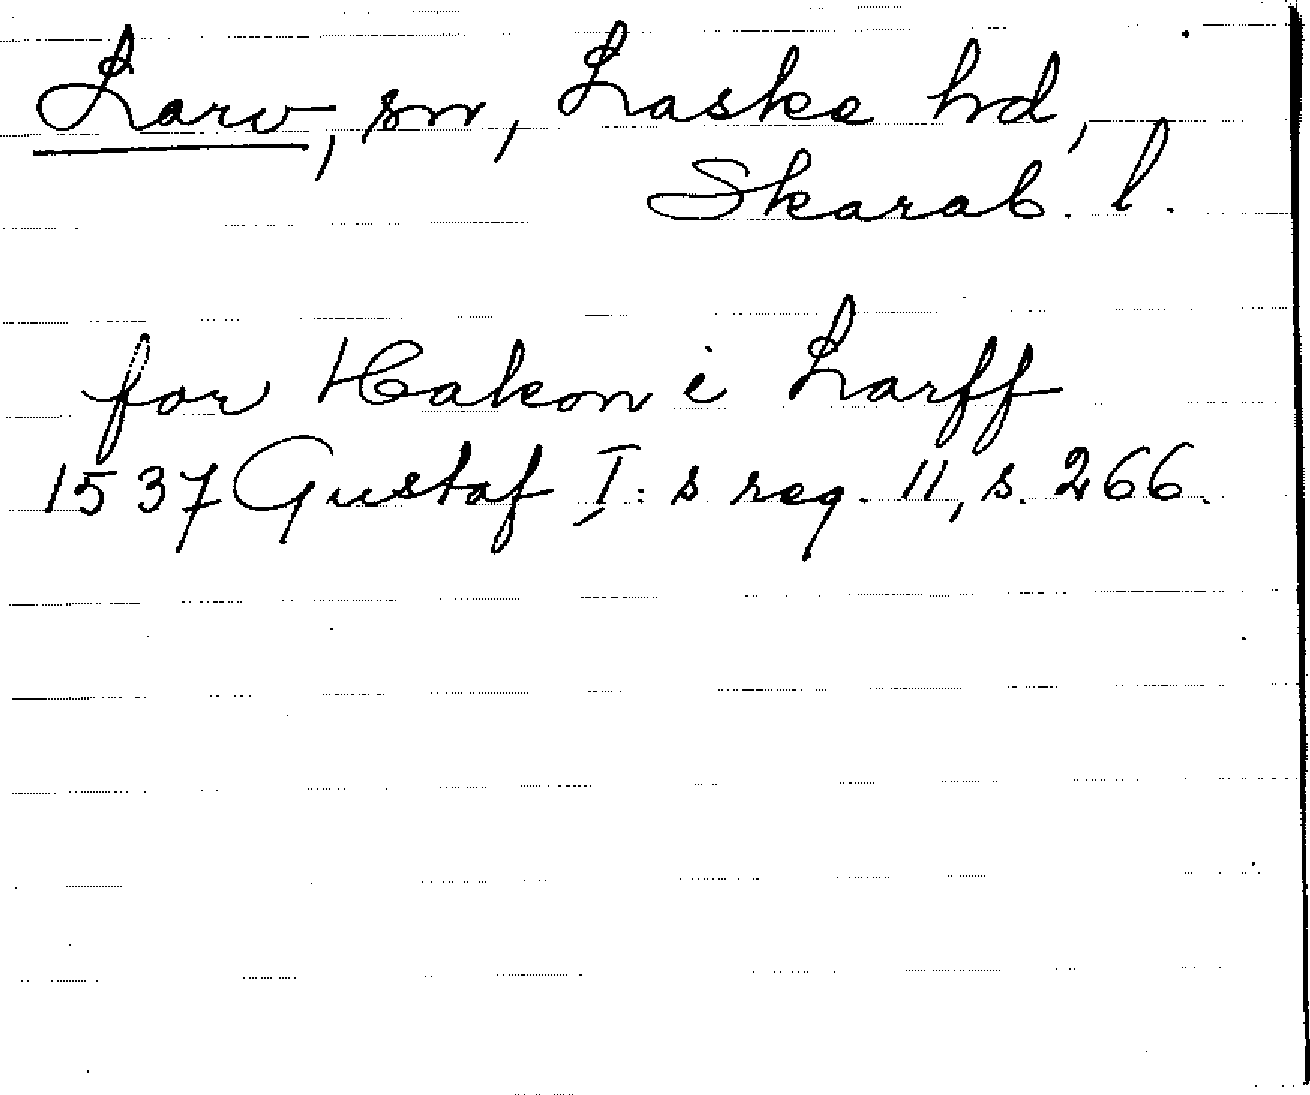 Larv, sn, Laske hd,
Skarab. l.
for Hakon i Larff
1537 Gustaf I:s reg. 11, s. 266.